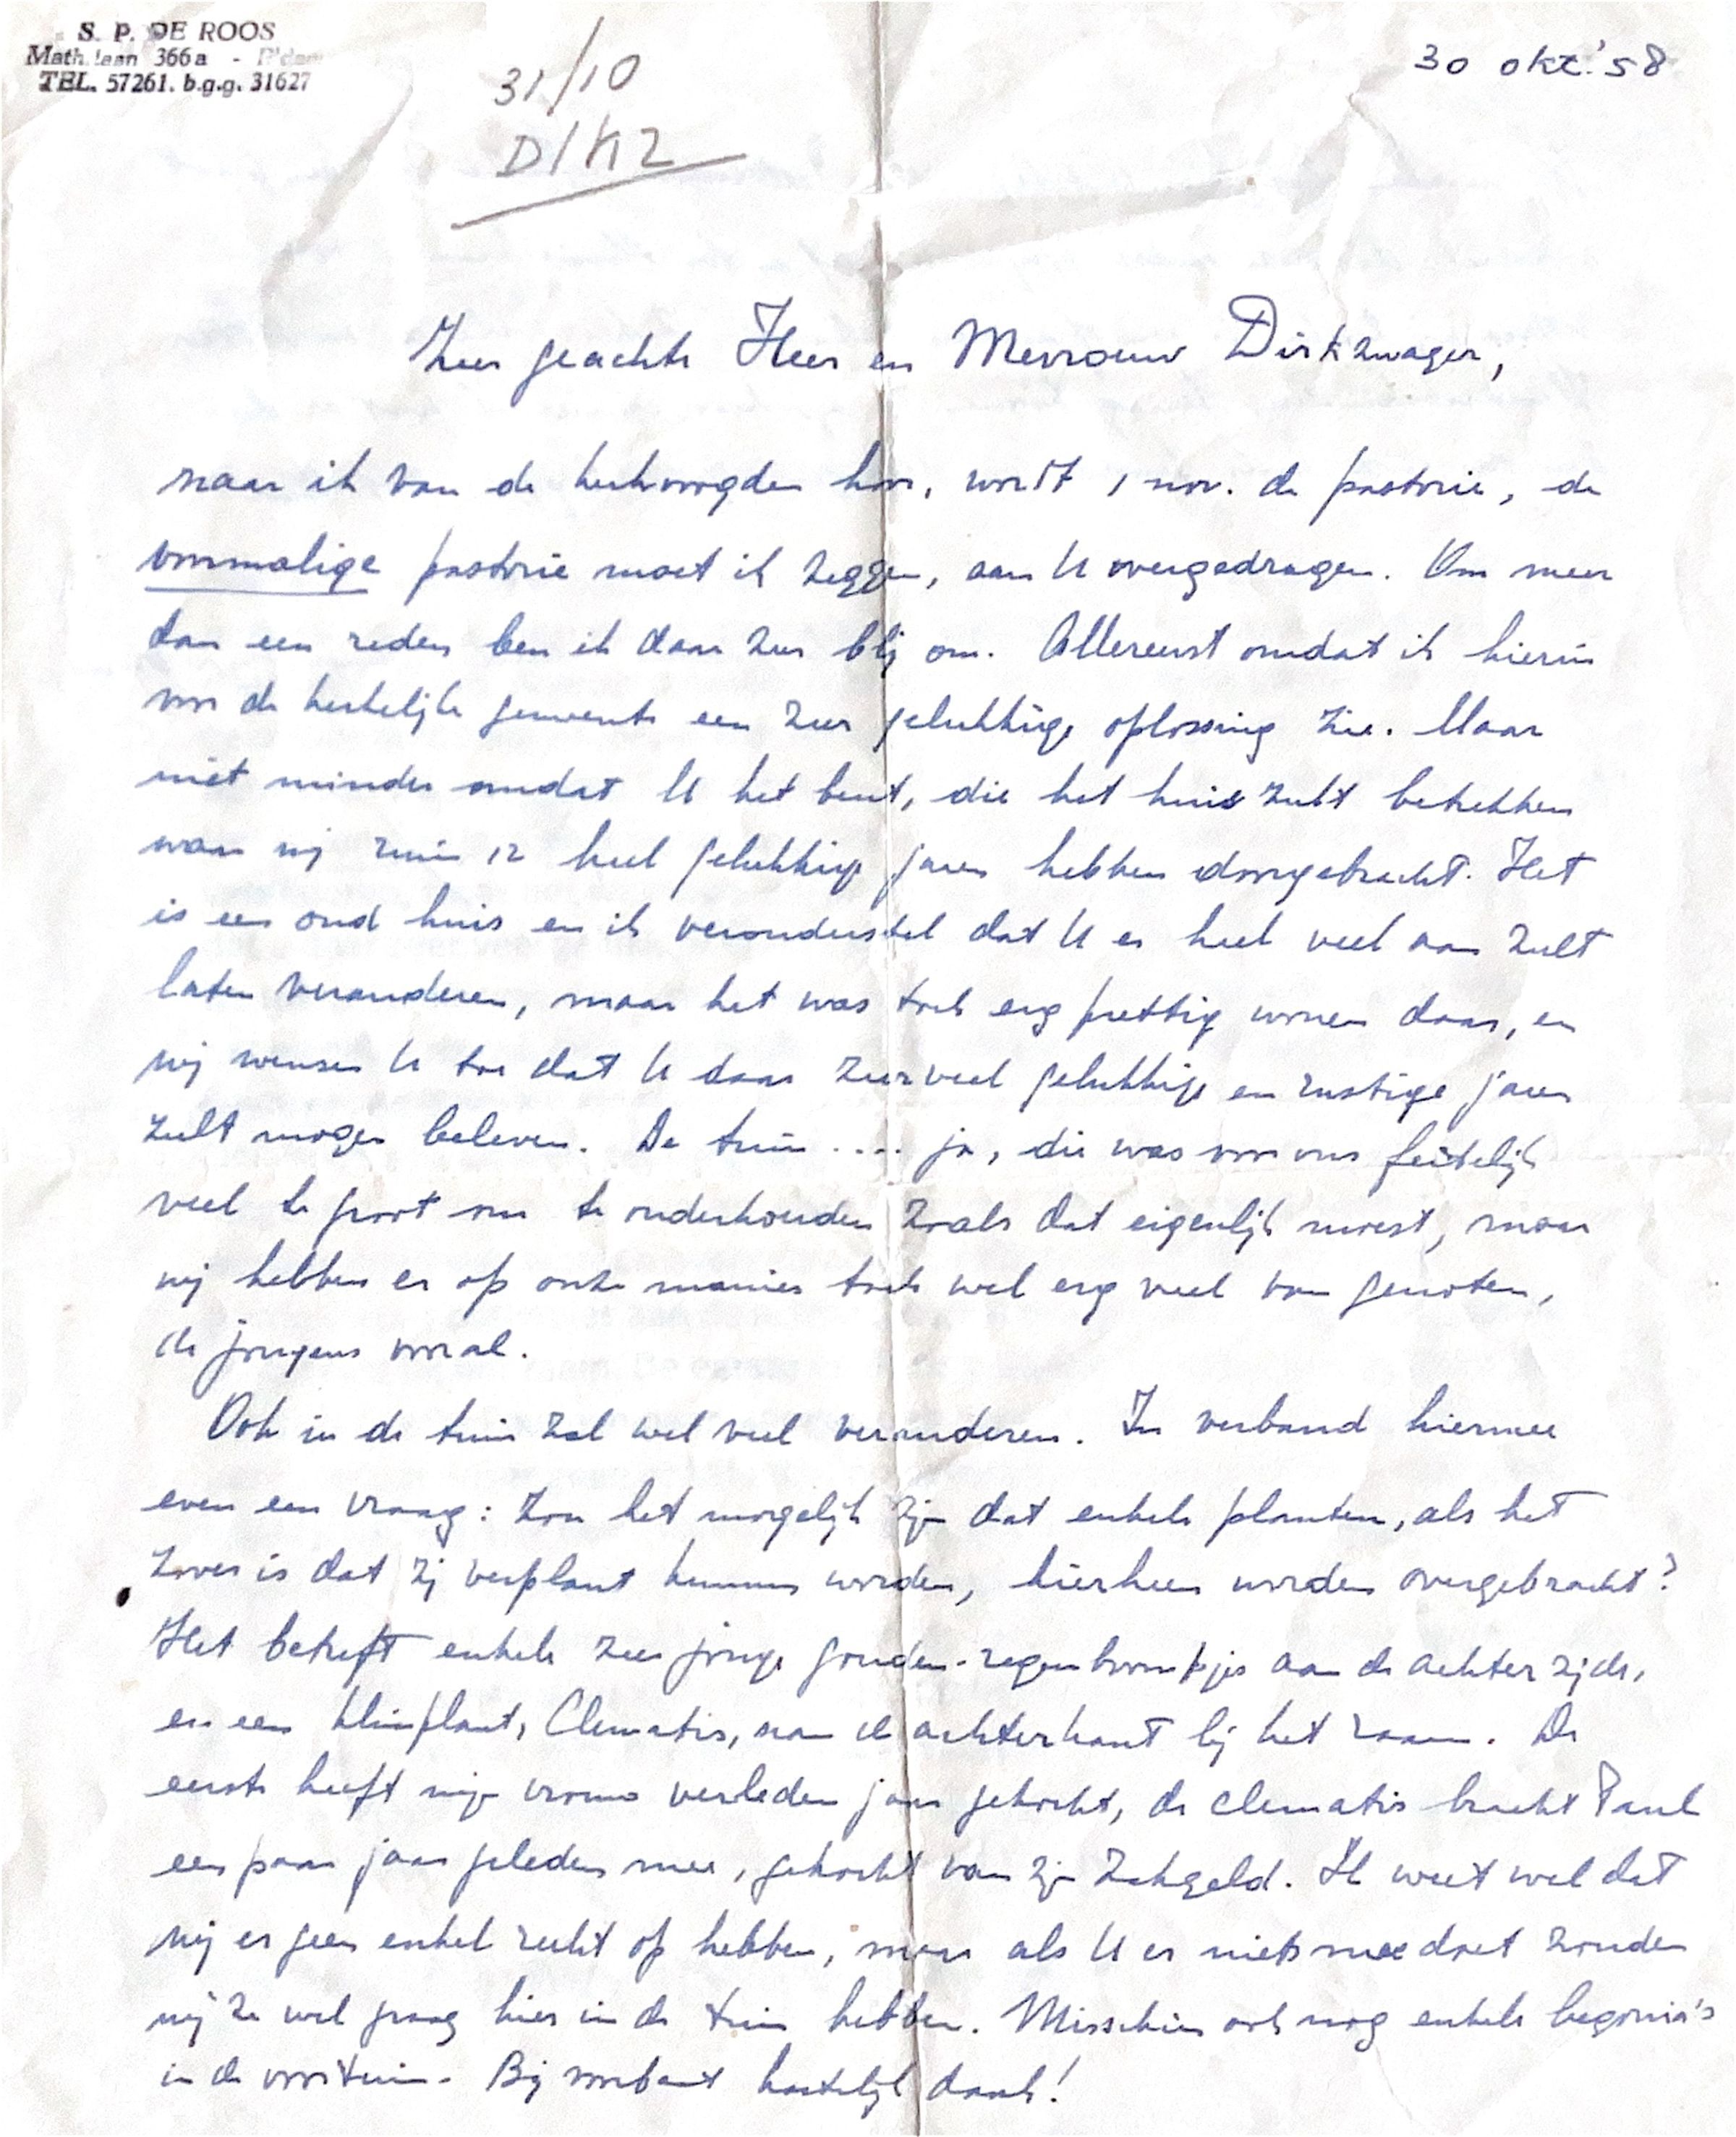 S. P. DE ROOS
Math.laan 366a - R'dam
TEL. 57261. b.g.g. 31627
30 okt.'58
31/10
D/K2
Zeer geachte Heer en Mevrouw Dirkzwager,
naar ik van de kerkvoogden hoor, wordt 1 nov. de pastorie, de
voormalige pastorie moet ik zeggen, aan U overgedragen. Om meer
dan een reden ben ik daar zeer blij om. Allereerst omdat ik hierin
voor de kerkelijke gemeente een zeer gelukkige oplossing zie. Maar
niet minder omdat U het bent, die het huis zult betrekken
waar wij ruim 12 heel gelukkige jaren hebben doorgebracht. Het
is een oud huis en ik veronderstel dat U er heel veel aan zult
laten veranderen, maar het was toch erg prettig wonen daar, en
wij wensen U toe dat U daar zeer veel gelukkige en rustige jaren
zult mogen beleven. De tuin .... ja, die was voor ons feitelijk
veel te groot om te onderhouden zoals dat eigenlijk moest, maar
wij hebben er op onze manier toch wel erg veel van genoten,
de jongens vooral.
Ook in de tuin zal wel veel veranderen. In verband hiermee
even een vraag: Zou het mogelijk zijn dat enkele planten, als het
zover is dat zij verplant kunnen worden, hierheen worden overgebracht?
Het betreft enkele zeer jonge gouden-regenboompjes aan de achterzijde,
en een klimplant, Clematis, aan de achterkant bij het raam. De
eerste heeft mijn vrouw verleden jaar gekocht, de clematis bracht Paul
een paar jaar geleden mee, gekocht van zijn zakgeld. Ik weet wel dat
wij er geen enkel recht op hebben, maar als U er niets mee doet zouden
wij ze wel graag hier in de tuin hebben. Misschien ook nog enkele begonia's
in de voortuin. Bij voorbaat hartelijk dank!